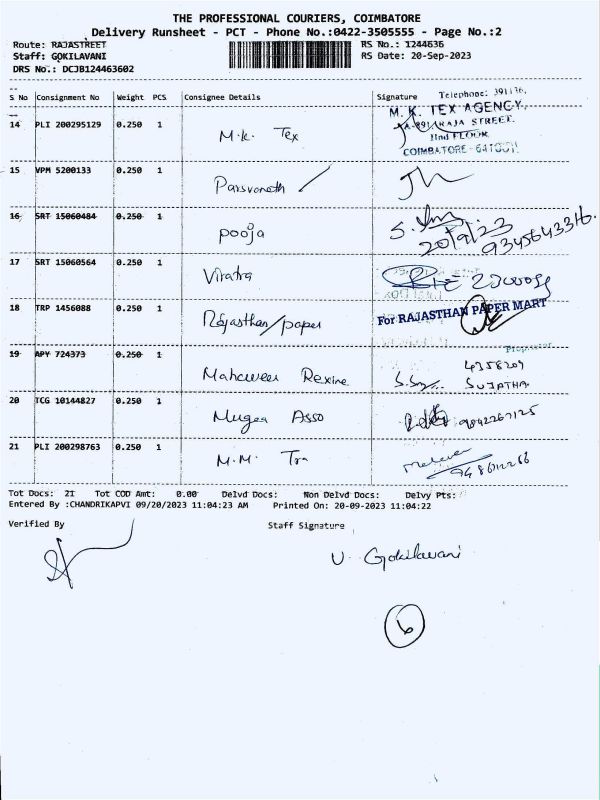 THE PROFESSIONAL COURIERS, COIMBATORE
Delivery Runsheet - PCT - Phone No.:0422-3505555 - Page No.:2
Route: RAJASTREET RS No.: 1244636
Staff: GOKILAVANI RS Date: 20-Sep-2023
DRS No.: DCJB124463602
S No Consignment No Weight PCS Consignee Details Signature Telephone: 391136,
14 PLI 200295129 0.250 1 M.K. Tex M. K. TEX AGENCY,
RAJA STREET.
IInd FLOOR
COIMBATORE - 641001
15 VPM 5200133 0.250 1 Parsvanath
16 SRT 15060484 0.250 1 pooja 20/9/23 9345643316.
17 SRT 15060564 0.250 1 Viratra
18 TRP 1456088 0.250 1 Rajasthan/paper For RAJASTHAN PAPER MART
Proprietor
19 APY 724373 0.250 1 Mahaveer Rexine 4358209
SUJATHA
20 TCG 10144827 0.250 1 Mugea Asso 9842267125
21 PLI 200298763 0.250 1 M.M. Tra
Tot Docs: 21 Tot COD Amt: 0.00 Delvd Docs: Non Delvd Docs: Delvy Pts:
Entered By :CHANDRIKAPVI 09/20/2023 11:04:23 AM Printed On: 20-09-2023 11:04:22
Verified By Staff Signature
V. Gokilavani
6